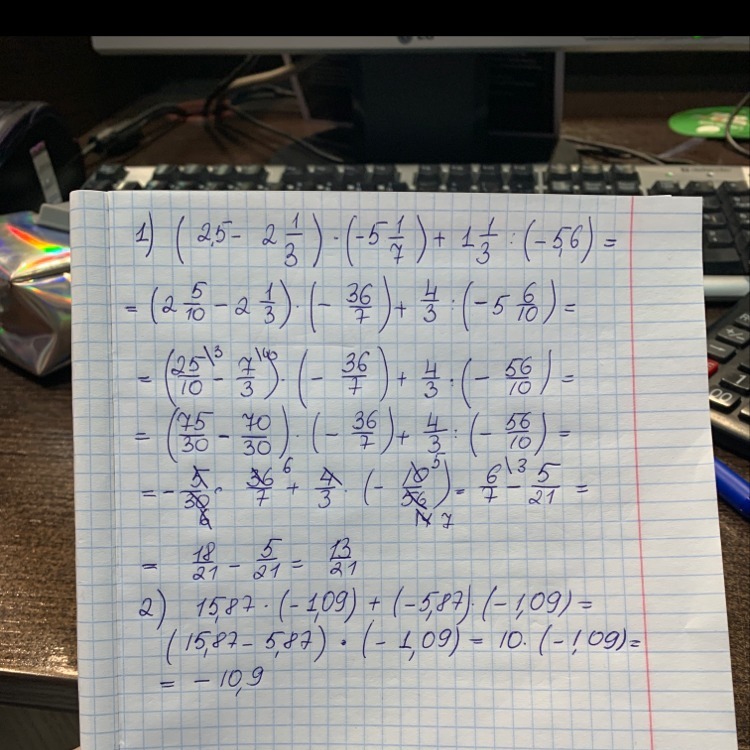 1) (2,5 - 2 1/3) · (-5 1/7) + 1 1/3 : (-5,6) =
= (2 5/10 - 2 1/3) · (- 36/7) + 4/3 : (-5 6/10) =
= (25/10 \3 - 7/3 \10) · (- 36/7) + 4/3 : (- 56/10) =
= (75/30 - 70/30) · (- 36/7) + 4/3 : (- 56/10) =
= - 5/30 6 · 36 6/7 + 4/3 · (- 10 5/56 14 7) = 6/7 \3 - 5/21 =
= 18/21 - 5/21 = 13/21
2) 15,87 · (-1,09) + (-5,87) · (-1,09) =
(15,87 - 5,87) · (-1,09) = 10 · (-1,09) =
= -10,9